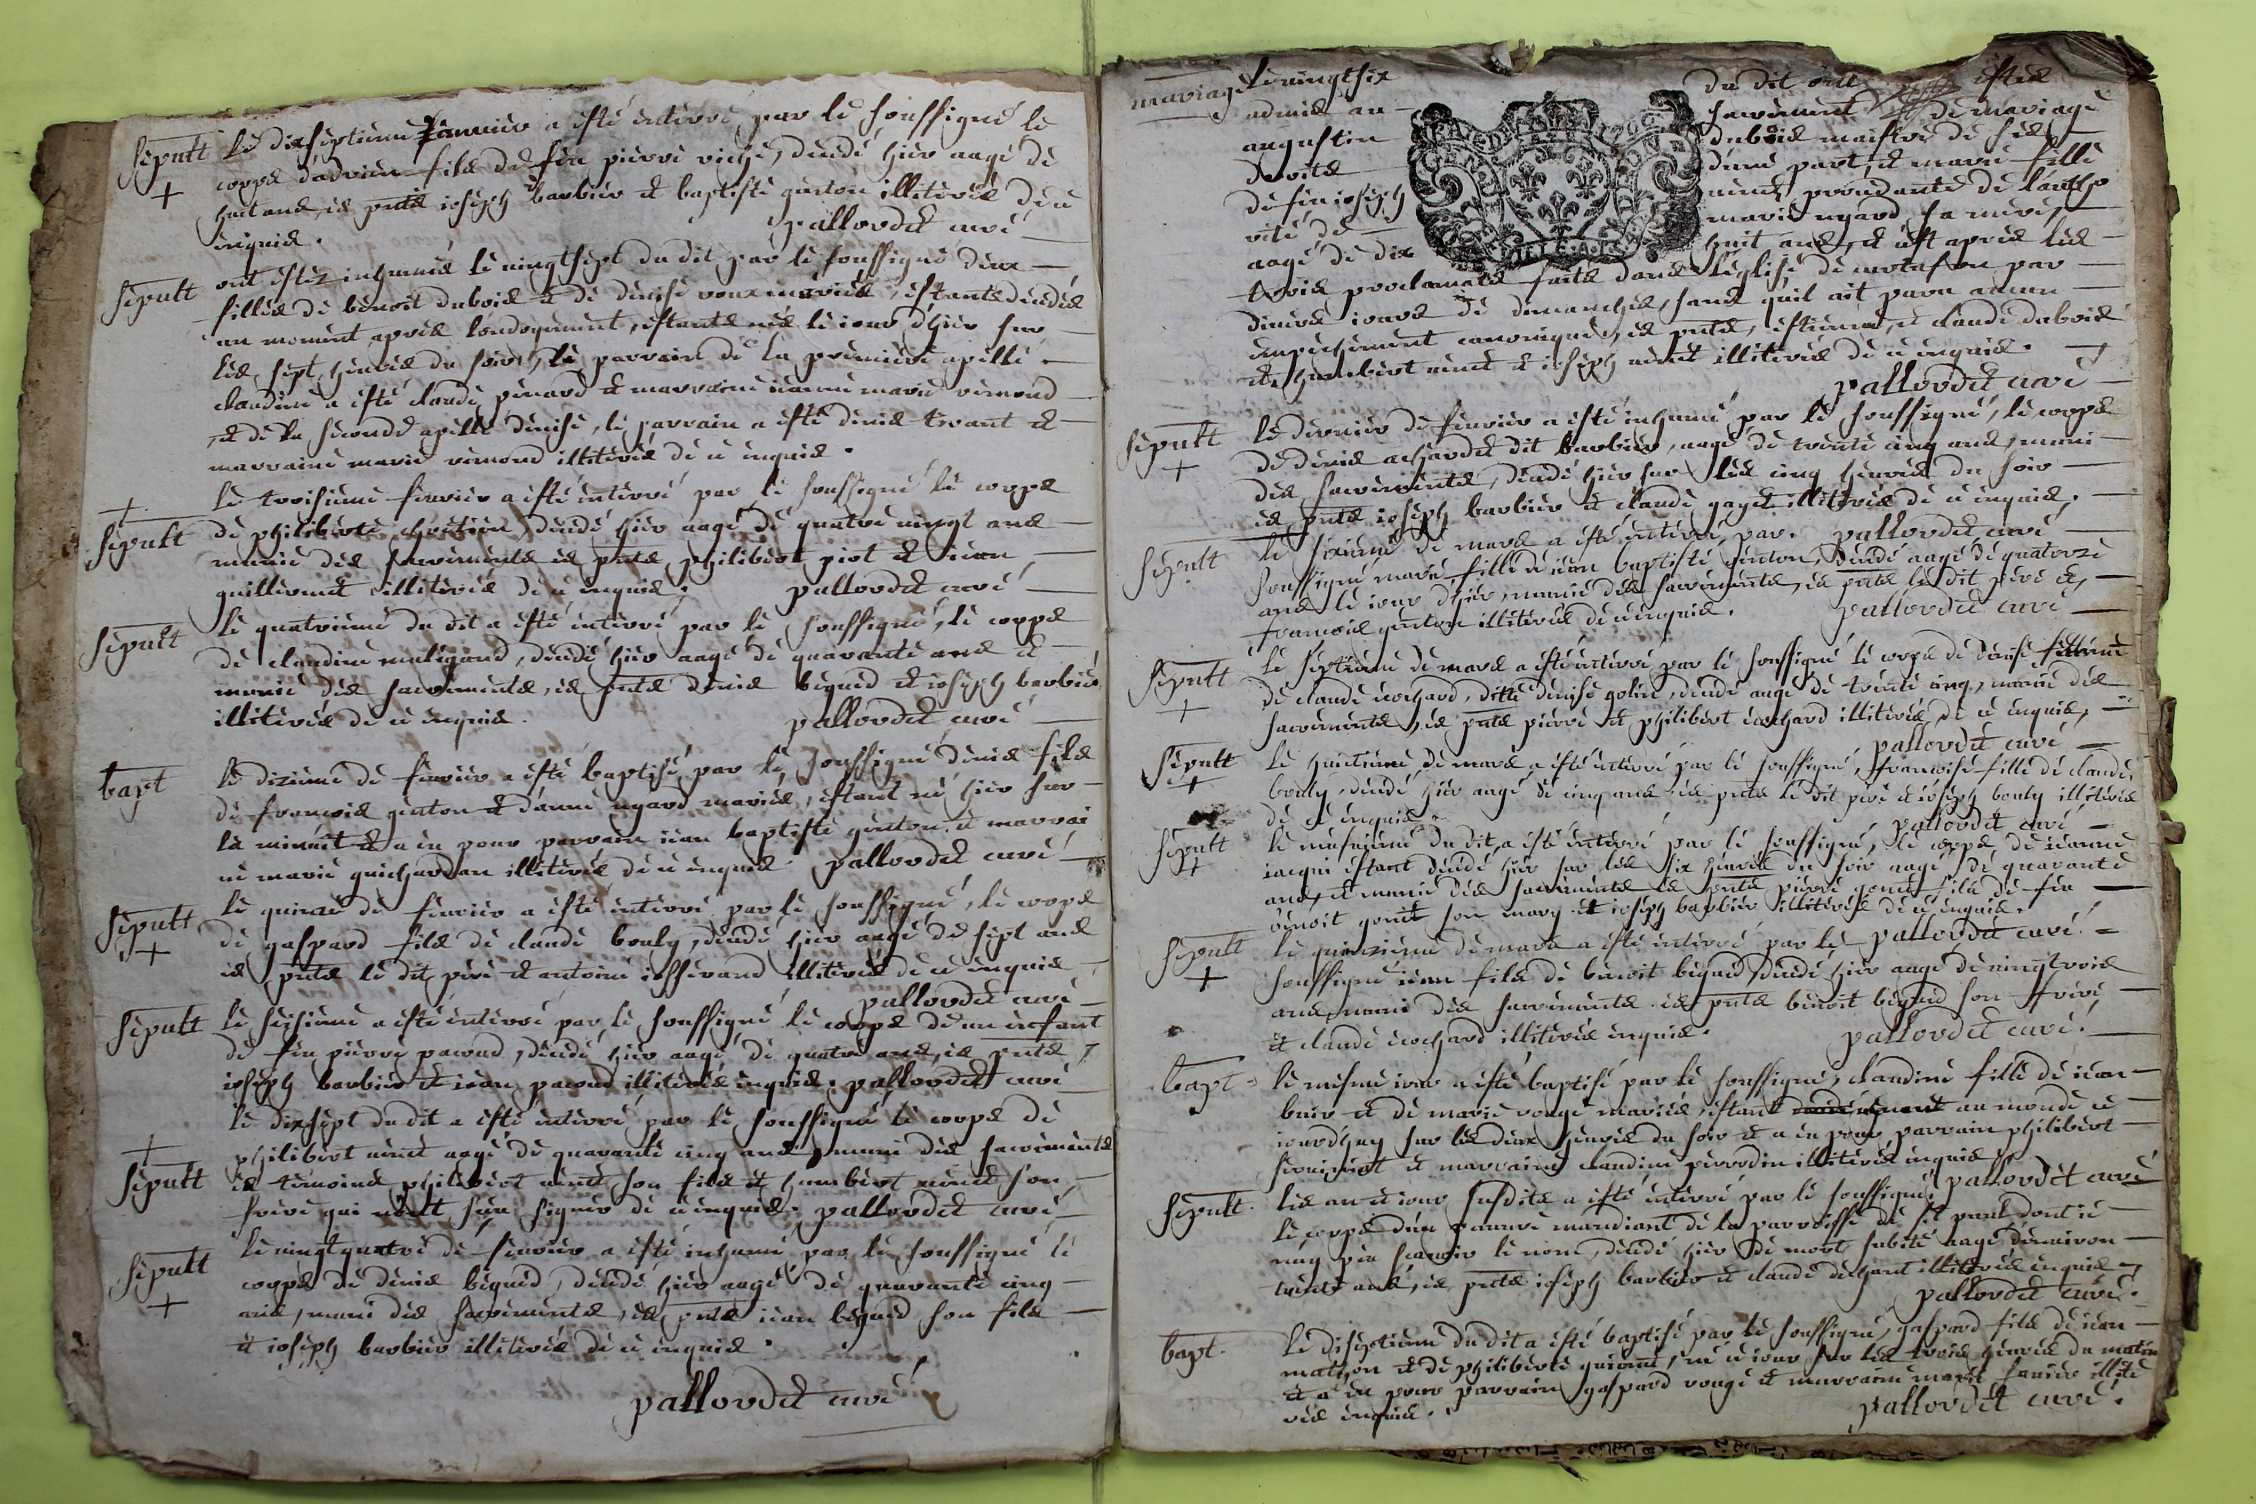 sepult le dixseptieme Januier a esté enterré par le soussigné le
corps dadrien fils de feu pierre riche, decedé hier aagé de
huit ans, es pnts ioseph barbier et baptiste genton illiterés de ce
enquis. pallordet curé
sepult ont estez inhumés le vingtsept du dit par le soussigné deux
filles de benoit dubois et de denise roux mariés, estants decedés
un moment apres londoyement, estants nés le iour dhier sur
les sept heures du soir, le parrain de la premiere apellé
claudine a esté claude penard et marraine ieanne marie rimond
et de la seconde apellé denise, le parrain a esté denis trouant et
marraine marie rimond illiterés de ce enquis.
le troisieme feurier a esté enterré par le soussigné le corps
sepult de philiberte chretien, decedé hier aagé de quatre vingt ans
munie des sacrements es pnts philibert piot et iean
guilleminet illiterés de ce enquis. pallordet curé
sepult le quatrieme du dit a esté enterré par le soussigné, le corps
de claudine maligand, decedé hier aagé de quarante ans et
munie des sacrements, es pnts denis begund et ioseph barbier
illiterés de ce enquis. pallordet curé
bapt le dixieme de feurier a esté baptisé par le soussigné denis fils
de francois genton et danne ngard mariés, estant né hier sur
le minuit et a eu pour parrain iean baptiste genton et marrai
ne marie guichardan illiterés de ce enquis. pallordet curé
sepult le quinze de feurier a esté enterré par le soussigné, le corps
de gaspard fils de claude bouly, decedé hier aagé de sept ans
es pnts le dit pere et antoine iosserand illiterés de ce enquis
pallordet curé
sepult le seisieme a esté enterré par le soussigné le corps de un enfant
de feu pierre pacaud, decedé hier aagé de quatre ans, es pnts
ioseph barbier et iean pacaud illiterés enquis. pallordet curé
le dixsept du dit a esté enterré par le soussigné le corps de
sepult philibert uenet aagé de quarante cinq ans, muni des sacrements
es temoins philibert uenet son fils et humbert uenet son
frere qui nont seu signer de ce enquis. pallordet curé
sepult le vingtquatre de feurier a esté inhumé par le soussigné le
corps de denis begund, decedé hier aagé de quarante cinq
ans, muni des sacrements, es pnts iean begund son fils
et ioseph barbier illiterés de ce enquis.
pallordet curé
mariage le vingtsix du dit ont estés
admis au sacrement de mariage
augustin dubois maistre de
de feu ioseph dune part, et marie fille
mineure prouedante de lautho
rité de marie ngard sa mere,
aagé de dix huit ans, et est apres les
trois proclamats faits dans leglise de par
diuers iours de dimanches, sans quil ait paru aucun
empechement canonique, es pnts, estienne, et claude dubois
et humbert uenet et ioseph uenet illiterés de ce enquis.
pallordet curé
sepult le dernier de feurier a esté inhumé par le soussigné, le corps
de denis achardet dit barbier, aagé de trente cinq ans, muni
des sacrements, decedé hier sur les cinq heures du soir
es pnts ioseph barbier et claude gayet illiterés de ce enquis.
pallordet curé
sepult le sixieme de mars a esté enterré, par
soussigné marie fille de iean baptiste genton, decedé aagé de quatorze
ans le iour dhier, munie des sacrements, es pnts le dit pere et
francois genton illiterés de ce enquis. pallordet curé
sepult le septieme de mars a esté enterré par le soussigné le corps de denise
de claude cochard, ditte denise gobin, decedé aagé de trente cinq, munie des
sacrements, es pnts pierre et philibert cochard illiterés de ce enquis,
pallordet curé
sepult le huitieme de mars a esté enterré par le soussigné, francoise fille de claude
bouly, decedé hier aagé de cinq ans es pnts le dit pere et ioseph bouly illiterés
de ce enquis. pallordet curé
sepult le neufuieme du dit a esté enterré par le soussigné, le corps de ieanne
iacqui estant decedé hier sur les six heures du soir aagé de quarante
ans, et munie des sacrements es pnts pierre gonet fils de feu
benoit gonet son mary et ioseph barbier illiterés de ce enquis.
pallordet curé
sepult le quinzieme de mars a esté enterré par le
soussigné iean fils de benoit begund, decedé hier aagé de vingttrois
ans, muni des sacrements es pnts benoit begund son frere
et claude cochard illiterés enquis. pallordet curé
bapt le mesme iour a esté baptisé par le soussigné, claudine fille de iean
buir et de marie rougé mariés, estant au monde ce
iourdhuy sur les deux heures du soir et a eu pour parrain philibert
et marraine claudine perrodin illiterés enquis
pallordet curé
sepult les an et iour susdits a esté enterré par le soussigné
le corps dun pauure mandiant de la parroisse de st paul dont ie
nay peu scauoir le nom, decedé hier de mort subite aagé denuiron
trente ans, es pnts ioseph barbier et claude dechant illiterés enquis
pallordet curé.
bapt le diseptieme du dit a esté baptisé par le soussigné, gaspard fils de iean
mathon et de philiberte guionet, né ce iour sur les trois heures du matin
et a eu pour parrain gaspard rougé et marraine marie ianier illite
rés enquis. pallordet curé.